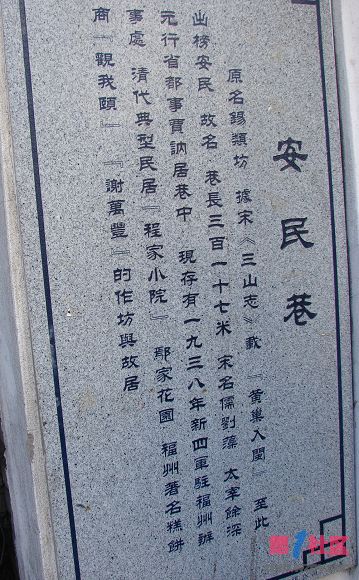 安民巷
原名錫類坊 據宋《三山志》載 『黃巢入閩 至此
出榜安民 故名 巷長三百一十七米 宋名儒劉藻 太宰餘深
元行省都事賈訥居巷中 現存有一九三八年新四軍駐福州辦
事處 清代典型民居『程家小院』 鄢家花園 福州著名糕餅
商『觀我頤』 『謝萬豐』的作坊與故居
第1社區